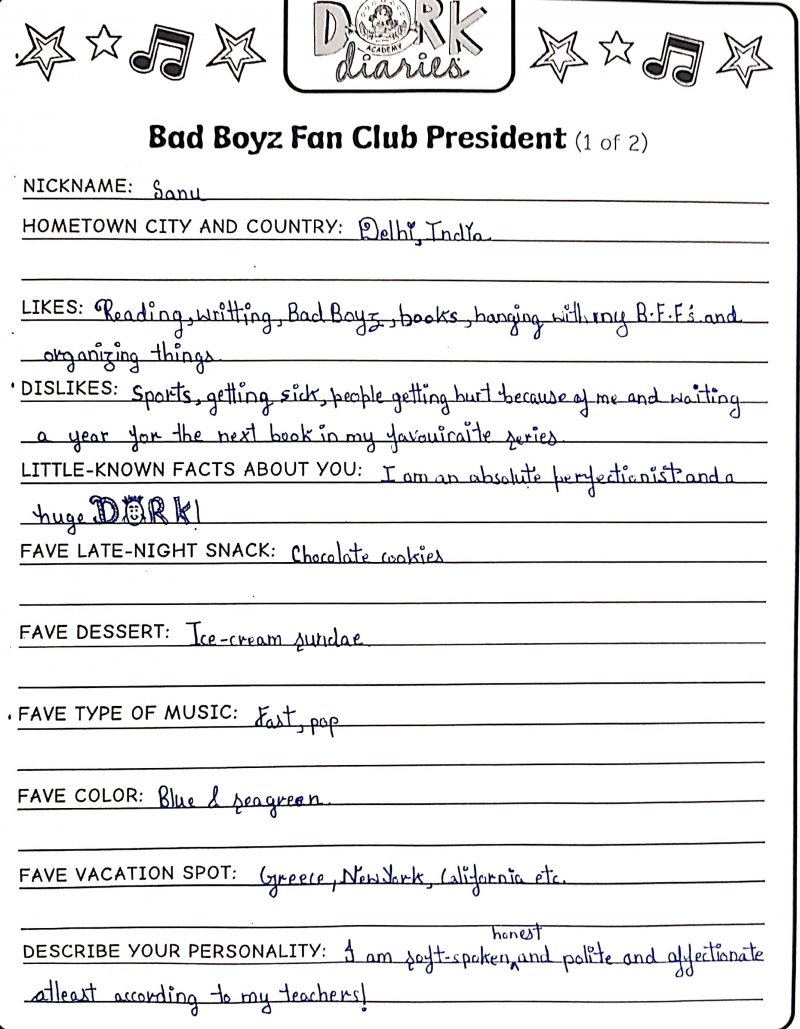 DORK
ACADEMY
diaries
Bad Boyz Fan Club President (1 of 2)
NICKNAME: Sanu
HOMETOWN CITY AND COUNTRY: Delhi, India
LIKES: Reading, writting, Bad Boyz, books, hanging with my B.F.F's and
organizing things.
DISLIKES: Sports, getting sick, people getting hurt because of me and waiting
a year for the next book in my favouiraite series.
LITTLE-KNOWN FACTS ABOUT YOU: I am an absolute perfectionist and a
huge DORK!
FAVE LATE-NIGHT SNACK: Chocolate cookies
FAVE DESSERT: Ice-cream sundae
FAVE TYPE OF MUSIC: Fast, pop
FAVE COLOR: Blue & seagreen.
FAVE VACATION SPOT: Greece, New York, California etc.
honest
DESCRIBE YOUR PERSONALITY: I am soft-spoken, and polite and affectionate
atleast according to my teachers!